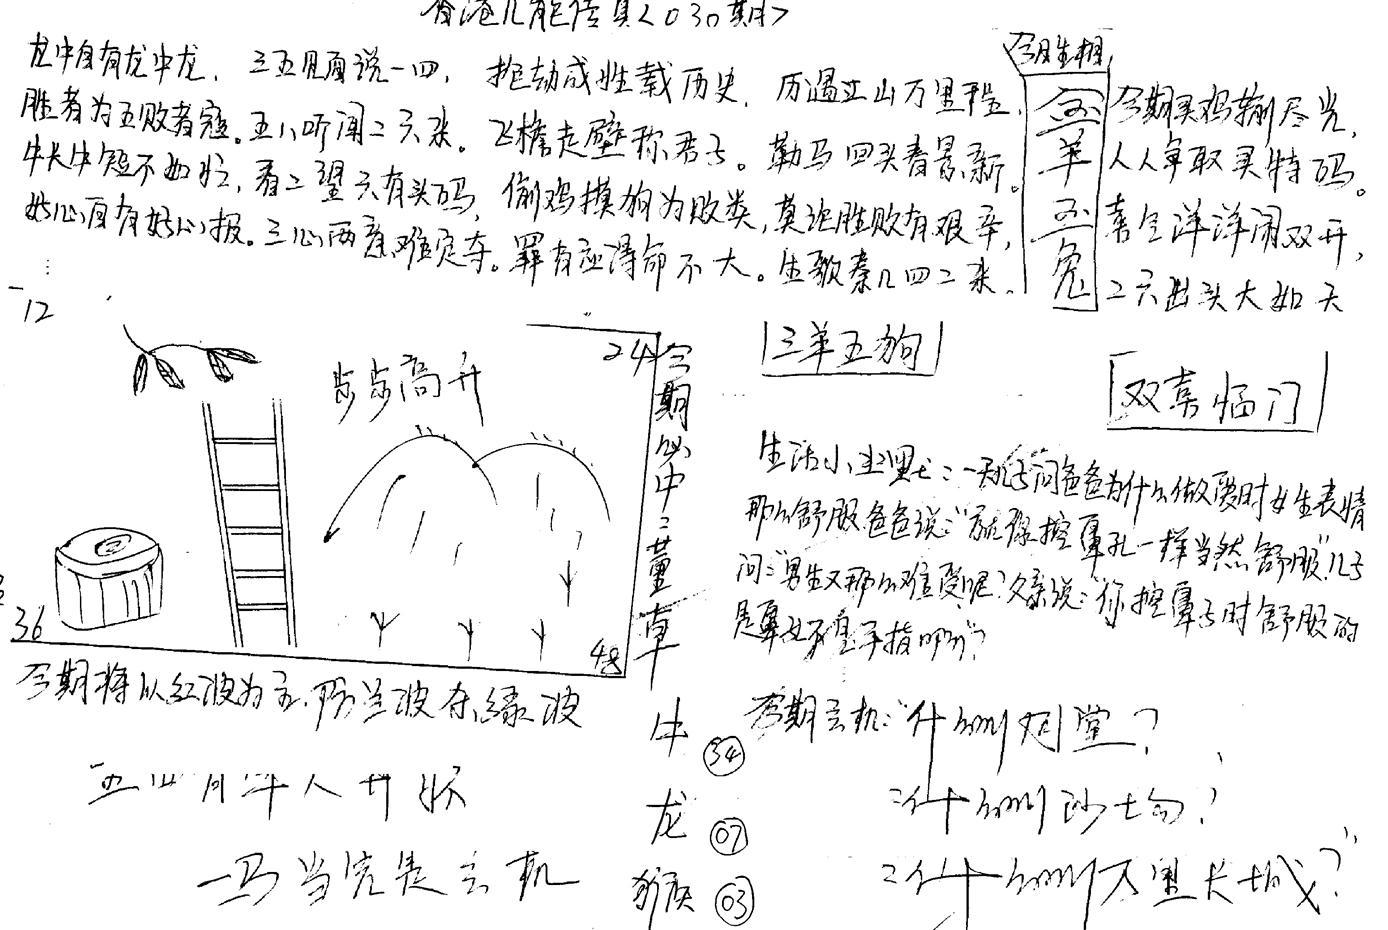 香港几能传真<030期>
龙中自有龙中龙，三五见面说一四，
胜者为王败者寇。五八听闻二六来。
牛长牛短不如忙，看二望六有头码，
好心自有好心报。三心两意难定夺。
抢劫成性载历史，历遍江山万里程，
飞檐走壁称君子。勒马回头看景新。
偷鸡摸狗为败类，莫论胜败有艰辛，
罪有应得命不大。生歌奏几四二来。
今期生相
金羊玉兔
今期买鸡输尽光，
人人争取买特码。
喜气洋洋闹双开，
二六出头大如天
三羊五狗
双喜临门
12
24
步步高升
36
48
今期必中：甘薑草
生活小 一天儿子问爸爸为什么做爱时女生表情
那么舒服爸爸说："就像挖鼻孔一样当然舒服"儿子
问："男生又那么难受呢？父亲说："你挖鼻子时舒服的
是鼻子不是手指吗？"
今期将以红波为主，防兰波夺绿波
一马当先是玄机
牛 34
龙 07
猴 03
今期玄机："什么叫 堂？
什么叫沙场？
什么叫万里长城？"